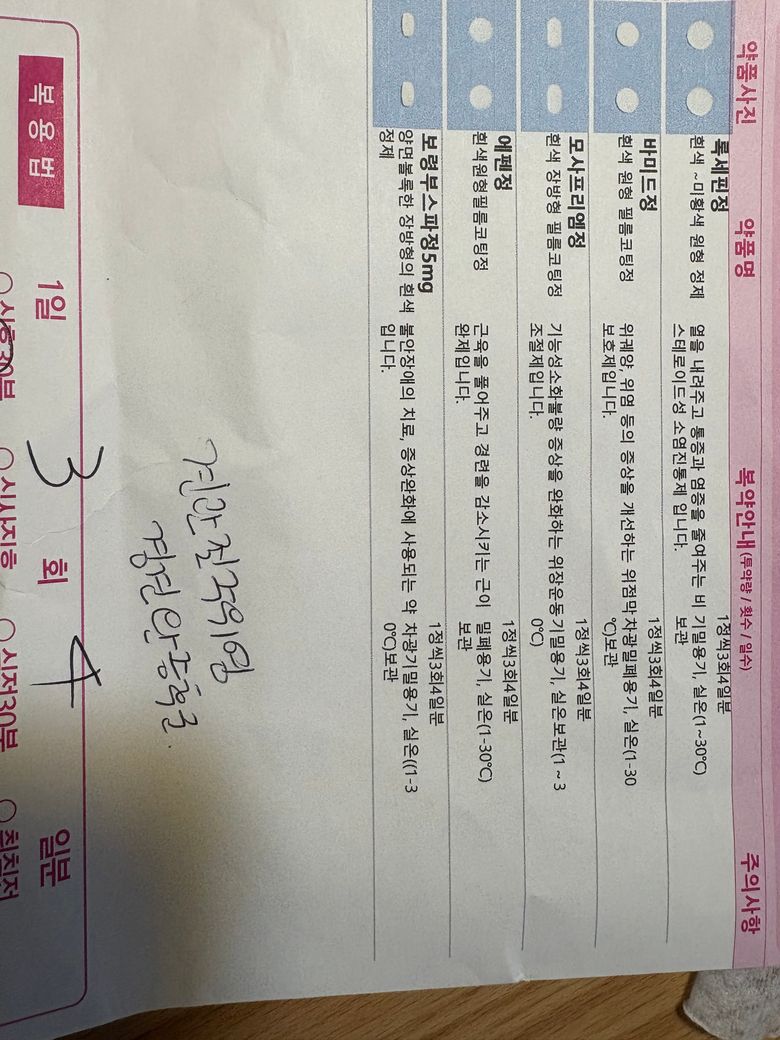 약품사진 약품명 복약안내(투약량 / 횟수 / 일수) 주의사항
록세핀정
흰색 ~미황색 원형 정제
열을 내려주고 통증과 염증을 줄여주는 비
스테로이드성 소염진통제 입니다.
1정씩3회4일분
기밀용기, 실온(1~30℃)
보관
바미드정
흰색 원형 필름코팅정
위궤양, 위염 등의 증상을 개선하는 위점막
보호제입니다.
1정씩3회4일분
차광밀폐용기, 실온(1-30
℃)보관
모사프리엠정
흰색 장방형 필름코팅정
기능성소화불량 증상을 완화하는 위장운동
조절제입니다.
1정씩3회4일분
기밀용기, 실온보관(1 ~ 3
0℃)
에펜정
흰색원형필름코팅정
근육을 풀어주고 경련을 감소시키는 근이
완제입니다.
1정씩3회4일분
밀폐용기, 실온(1-30℃)
보관
보령부스파정5mg
양면볼록한 장방형의 흰색
정제
불안장애의 치료, 증상완화에 사용되는 약
입니다.
1정씩3회4일분
차광기밀용기, 실온((1-3
0℃)보관
복용법 1일 3 회 4 일분